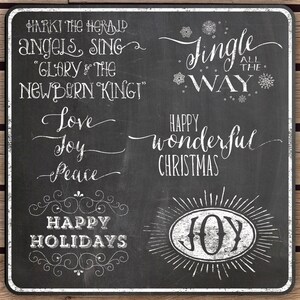 HARK! THE HERALD
ANGELS SING
"GLORY TO THE
NEWBORN KING!"
Jingle
ALL THE
WAY
Love
Joy
Peace
HAPPY
wonderful
CHRISTMAS
HAPPY
HOLIDAYS
JOY